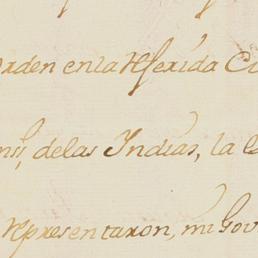 orden en la referida Ci
de las Indias, la
representaron, mi Gov